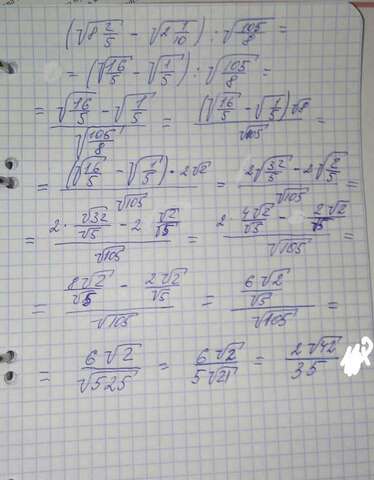 (√8 2/5 - √2 1/10) : √105/8 =
= (√16/5 - √1/5) : √105/8 =
= (√16/5 - √1/5) / √105/8 = (√16/5 - √1/5)√8 / √105
= (√16/5 - √1/5) · 2√2 / √105 = 2√32/5 - 2√2/5 / √105 =
= 2 · √32/√5 - 2 √2/√5 / √105 = 2 4√2/√5 - 2√2/√5 / √105 =
= 8√2/√5 - 2√2/√5 / √105 = 6√2/√5 / √105 =
= 6√2/√525 = 6√2/5√21 = 2√42/35